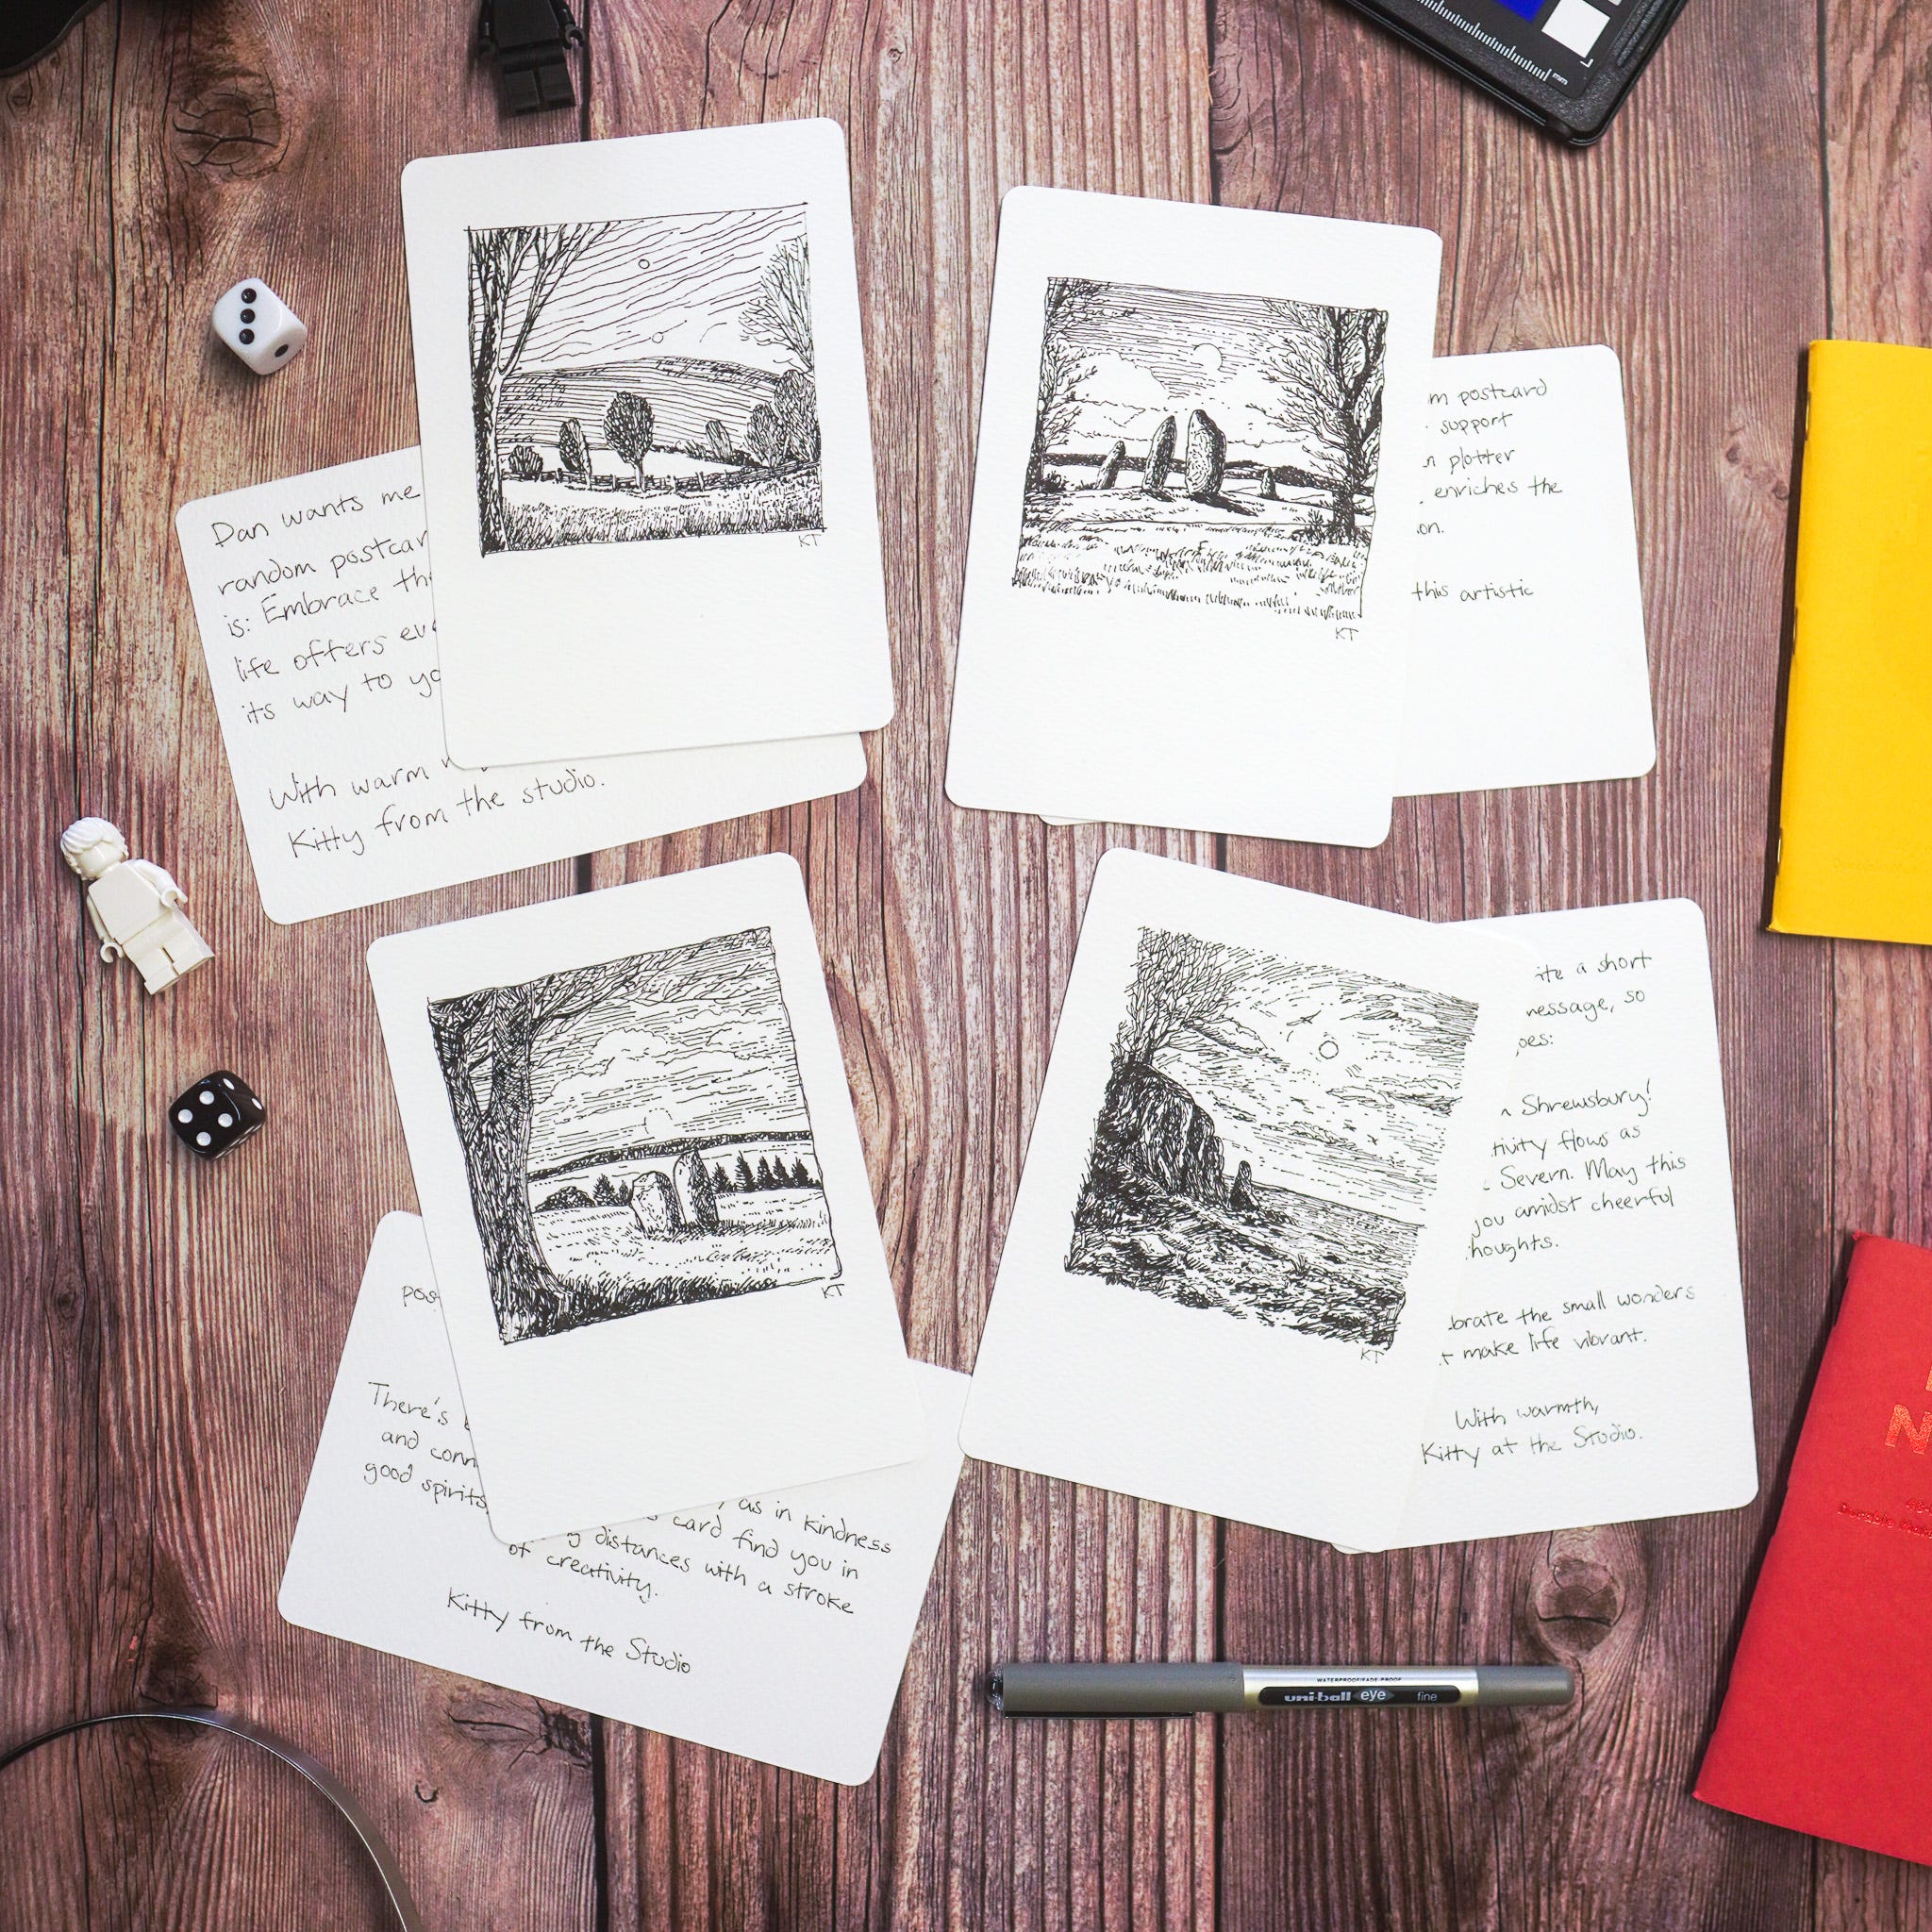 mm
KT
Dan wants me
random
is: Embrace
life offers
its way to
With warm
Kitty from the studio.
KT
postcard
support
plotter
enriches the
this artistic
KT
There's
and
good spirits
, as in kindness
card find you in
distances with a stroke
of creativity.
Kitty from the Studio
KT
a short
so
Shrewsbury!
flows as
Severn. May this
you amidst cheerful
the small wonders
make life vibrant.
With warmth,
Kitty at the Studio.
WATERPROOF/FADE-PROOF
uni-ball eye fine